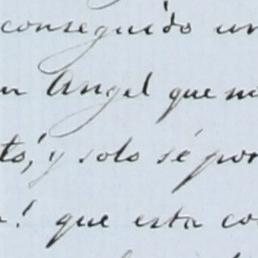 conseguido un
Angel que
y solo sé por
! que esta co